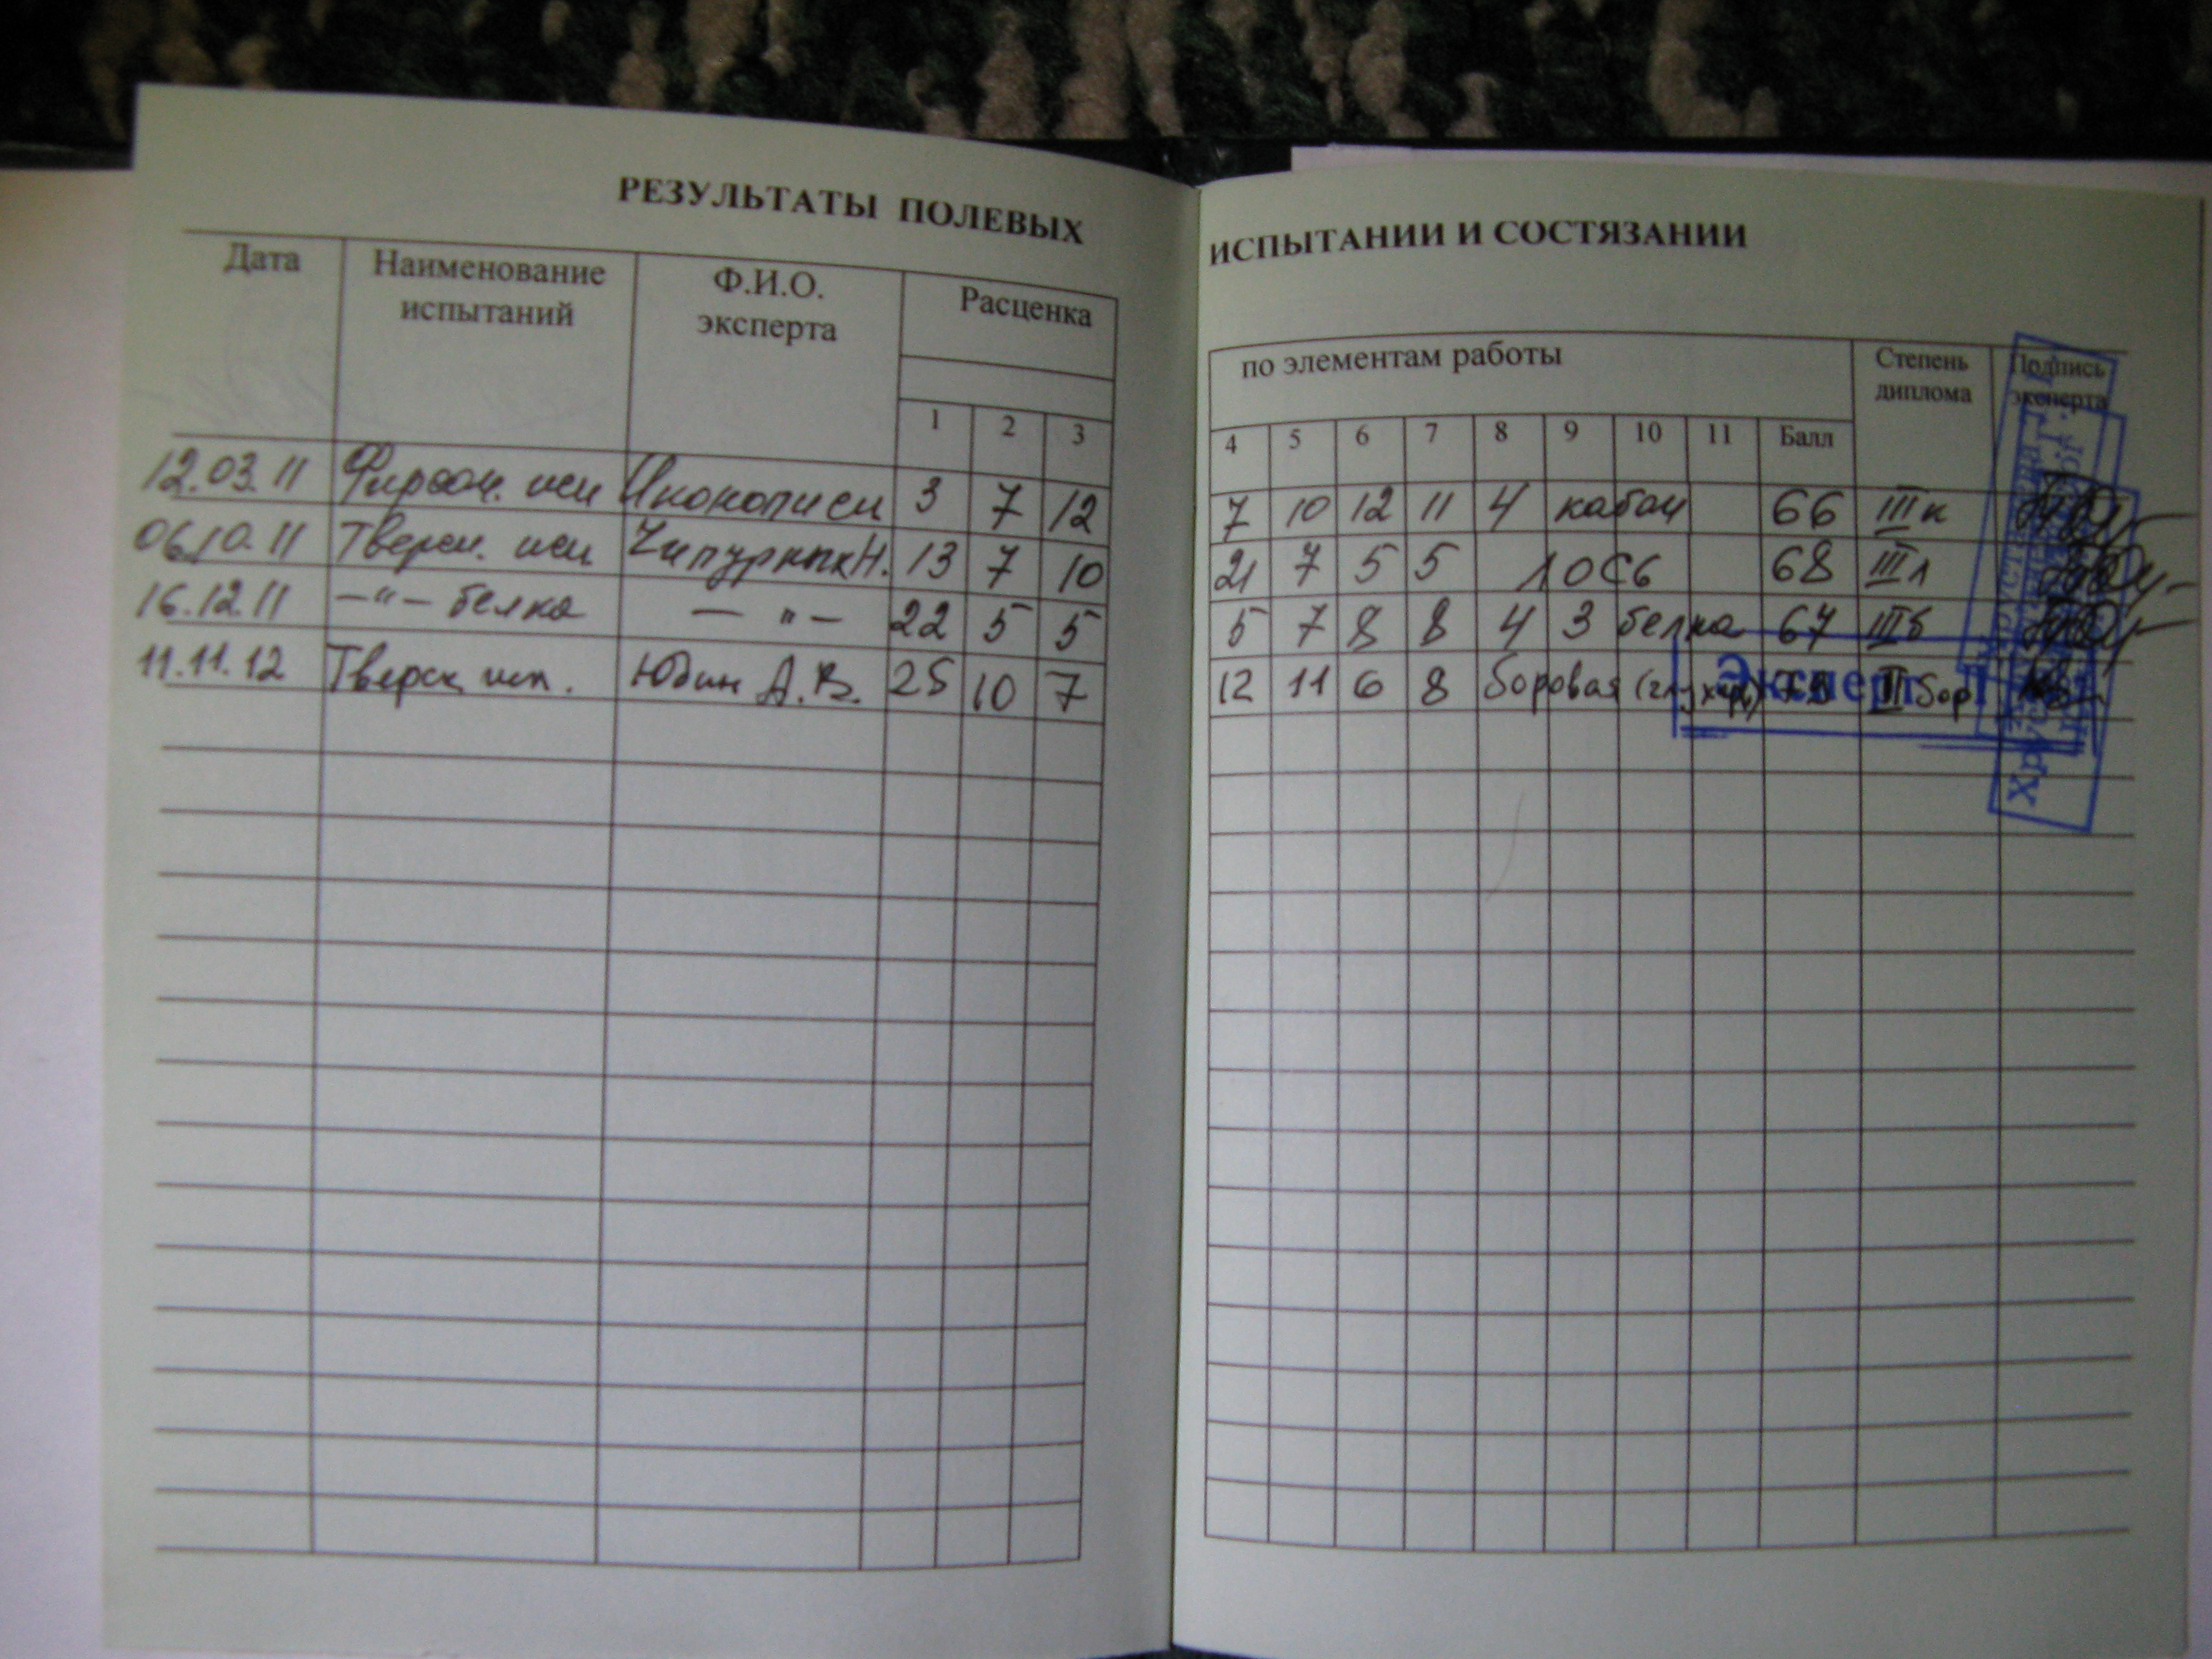 РЕЗУЛЬТАТЫ ПОЛЕВЫХ ИСПЫТАНИИ И СОСТЯЗАНИИ
Дата Наименование испытаний Ф.И.О. эксперта Расценка по элементам работы Степень диплома Подпись эксперта
1 2 3 4 5 6 7 8 9 10 11 Балл
12.03.11 3 7 12 7 10 12 11 4 кабан 66 III к
06.10.11 Тверск. исп 13 7 10 21 7 5 5 лось 68 III л
16.12.11 —"— белка —"— 22 5 5 5 7 8 8 4 3 белка 67 III б
11.11.12 Тверск исп. Юдин А.В. 25 10 7 12 11 6 8 боровая (глухарь) II бор
Эксперт